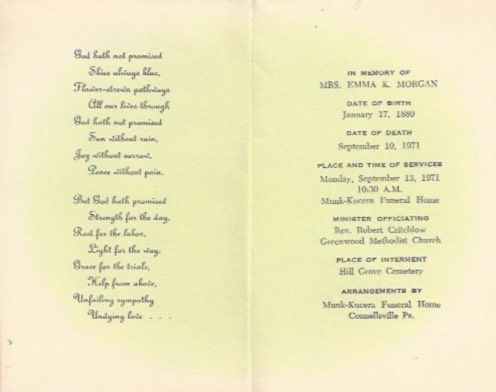 God hath not promised
Skies always blue,
Flower-strewn pathways
All our lives through
God hath not promised
Sun without rain,
Joy without sorrow,
Peace without pain.
But God hath promised
Strength for the day,
Rest for the labor,
Light for the way.
Grace for the trials,
Help from above,
Unfailing sympathy
Undying love . . .
IN MEMORY OF
MRS. EMMA K. MORGAN
DATE OF BIRTH
January 17, 1889
DATE OF DEATH
September 10, 1971
PLACE AND TIME OF SERVICES
Monday, September 13, 1971
10:30 A.M.
Munk-Kucera Funeral Home
MINISTER OFFICIATING
Rev. Robert Critchlow
Greenwood Methodist Church
PLACE OF INTERMENT
Hill Grove Cemetery
ARRANGEMENTS BY
Munk-Kucera Funeral Home
Connellsville Pa.